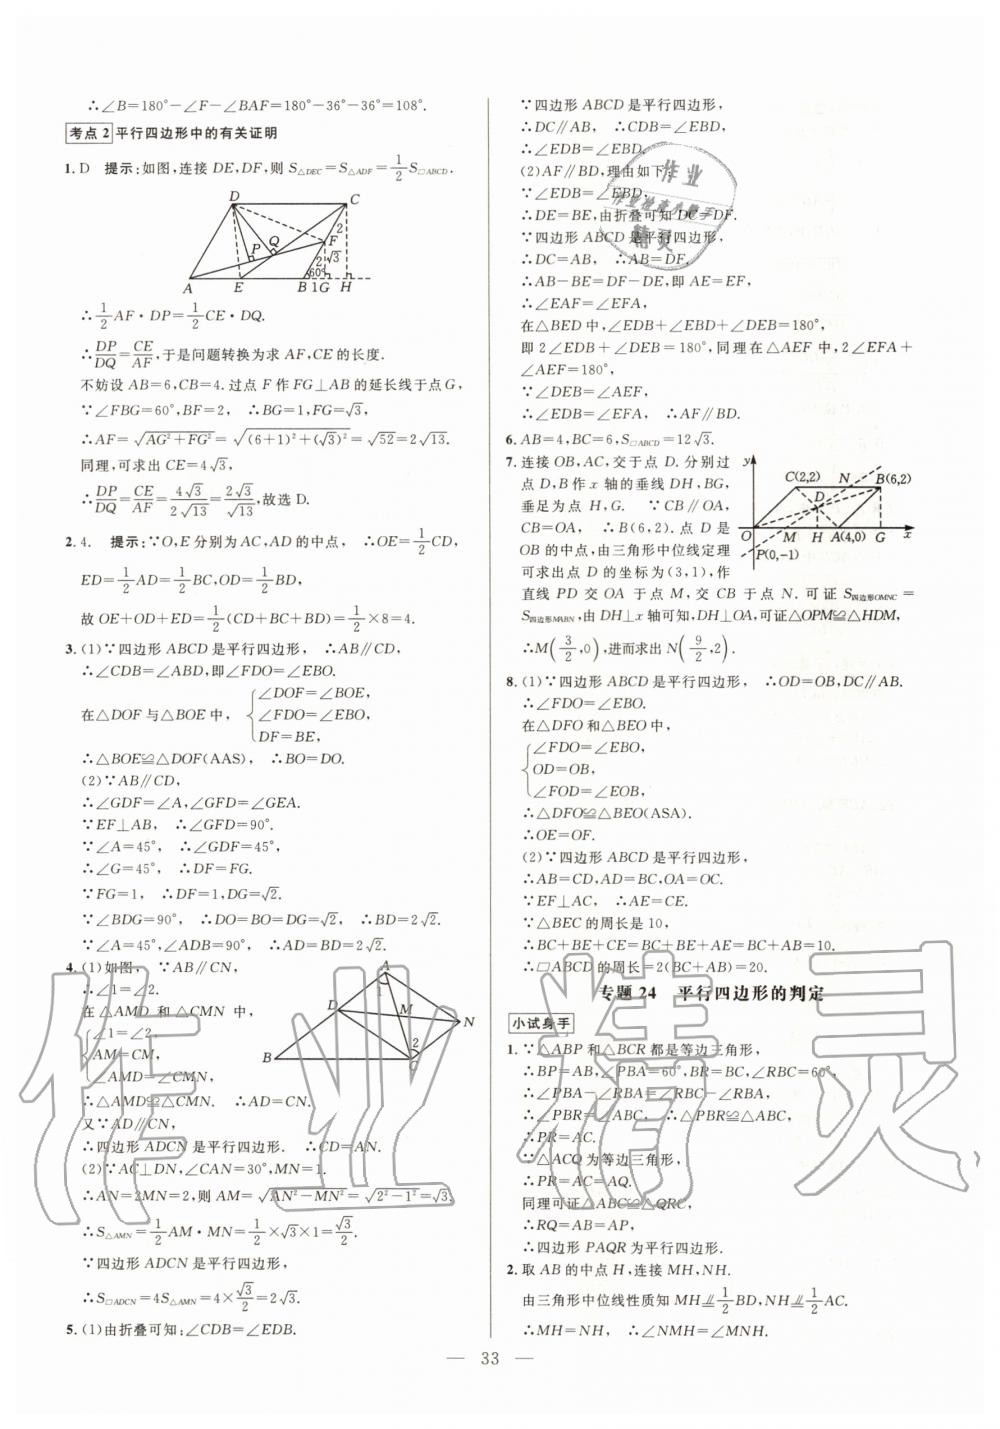 ∴∠B=180°-∠F-∠BAF=180°-36°-36°=108°.
考点 2 平行四边形中的有关证明
1. D 提示:如图,连接 DE,DF,则 S△DEC=S△ADF=1/2 S□ABCD.
D C
2
Q F
P
2 √3
60°
A E B 1 G H
∴1/2 AF·DP=1/2 CE·DQ.
∴DP/DQ=CE/AF,于是问题转换为求 AF,CE 的长度.
不妨设 AB=6,CB=4.过点 F 作 FG⊥AB 的延长线于点 G,
∵∠FBG=60°,BF=2, ∴BG=1,FG=√3,
∴AF=√(AG²+FG²)=√((6+1)²+(√3)²)=√52=2√13.
同理,可求出 CE=4√3,
∴DP/DQ=CE/AF=4√3/2√13=2√3/√13,故选 D.
2. 4. 提示:∵O,E 分别为 AC,AD 的中点, ∴OE=1/2 CD,
ED=1/2 AD=1/2 BC,OD=1/2 BD,
故 OE+OD+ED=1/2(CD+BC+BD)=1/2×8=4.
3. (1)∵四边形 ABCD 是平行四边形, ∴AB∥CD,
∴∠CDB=∠ABD,即∠FDO=∠EBO.
在△DOF 与△BOE 中, {∠DOF=∠BOE,
∠FDO=∠EBO,
DF=BE,
∴△BOE≌△DOF(AAS), ∴BO=DO.
(2)∵AB∥CD,
∴∠GDF=∠A,∠GFD=∠GEA.
∵EF⊥AB, ∴∠GFD=90°.
∵∠A=45°, ∴∠GDF=45°,
∴∠G=45°, ∴DF=FG.
∵FG=1, ∴DF=1,DG=√2.
∵∠BDG=90°, ∴DO=BO=DG=√2, ∴BD=2√2.
∵∠A=45°,∠ADB=90°, ∴AD=BD=2√2.
4. (1)如图, ∵AB∥CN,
∴∠1=∠2.
在△AMD 和△CMN 中,
{∠1=∠2,
AM=CM,
∠AMD=∠CMN,
∴△AMD≌△CMN. ∴AD=CN.
又∵AD∥CN,
∴四边形 ADCN 是平行四边形. ∴CD=AN.
A
1
D
M
N
2
B C
(2)∵AC⊥DN,∠CAN=30°,MN=1.
∴AN=2MN=2,则 AM=√(AN²-MN²)=√(2²-1²)=√3.
∴S△AMN=1/2 AM·MN=1/2×√3×1=√3/2.
∵四边形 ADCN 是平行四边形,
∴S□ADCN=4S△AMN=4×√3/2=2√3.
5. (1)由折叠可知:∠CDB=∠EDB.
∵四边形 ABCD 是平行四边形,
∴DC∥AB, ∴∠CDB=∠EBD,
∴∠EDB=∠EBD.
(2)AF∥BD,理由如下:
∵∠EDB=∠EBD,
∴DE=BE,由折叠可知 DC=DF.
∵四边形 ABCD 是平行四边形,
∴DC=AB, ∴AB=DF.
∴AB-BE=DF-DE,即 AE=EF,
∴∠EAF=∠EFA,
在△BED 中,∠EDB+∠EBD+∠DEB=180°,
即 2∠EDB+∠DEB=180°,同理在△AEF 中,2∠EFA+
∠AEF=180°,
∵∠DEB=∠AEF,
∴∠EDB=∠EFA, ∴AF∥BD.
6. AB=4,BC=6,S□ABCD=12√3.
7. 连接 OB,AC,交于点 D.分别过
点 D,B 作 x 轴的垂线 DH,BG,
垂足为点 H,G. ∵CB∥OA,
CB=OA, ∴B(6,2).点 D 是
OB 的中点,由三角形中位线定理
可求出点 D 的坐标为(3,1),作
y
C(2,2) N B(6,2)
D
O M H A(4,0) G x
P(0,-1)
直线 PD 交 OA 于点 M,交 CB 于点 N.可证 S四边形OMNC=
S四边形MABN,由 DH⊥x 轴可知,DH⊥OA,可证△OPM≌△HDM,
∴M(3/2,0),进而求出 N(9/2,2).
8. (1)∵四边形 ABCD 是平行四边形, ∴OD=OB,DC∥AB.
∴∠FDO=∠EBO.
在△DFO 和△BEO 中,
{∠FDO=∠EBO,
OD=OB,
∠FOD=∠EOB,
∴△DFO≌△BEO(ASA).
∴OE=OF.
(2)∵四边形 ABCD 是平行四边形,
∴AB=CD,AD=BC,OA=OC.
∵EF⊥AC, ∴AE=CE.
∵△BEC 的周长是 10,
∴BC+BE+CE=BC+BE+AE=BC+AB=10.
∴□ABCD 的周长=2(BC+AB)=20.
专题 24 平行四边形的判定
小试身手
1. ∵△ABP 和△BCR 都是等边三角形,
∴BP=AB,∠PBA=60°,BR=BC,∠RBC=60°,
∴∠PBA-∠RBA=∠RBC-∠RBA,
∴∠PBR=∠ABC, ∴△PBR≌△ABC,
∴PR=AC.
∵△ACQ 为等边三角形,
∴PR=AC=AQ.
同理可证△ABC≌△QRC,
∴RQ=AB=AP,
∴四边形 PAQR 为平行四边形.
2. 取 AB 的中点 H,连接 MH,NH.
由三角形中位线性质知 MH⫽1/2 BD,NH⫽1/2 AC.
∴MH=NH, ∴∠NMH=∠MNH.
— 33 —
作业
作业检查小帮手
精灵
作业精灵